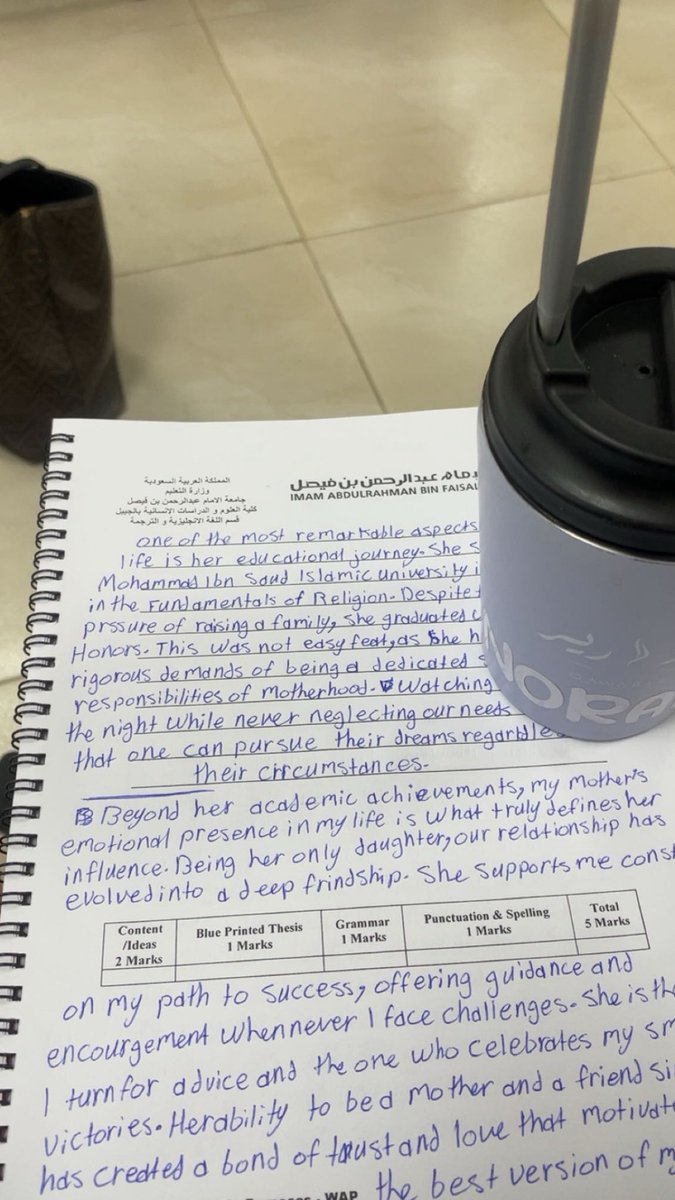 المملكة العربية السعودية
وزارة التعليم
جامعة الامام عبدالرحمن بن فيصل
كلية العلوم و الدراسات الإنسانية بالجبيل
قسم اللغة الانجليزية و الترجمة
عبدالرحمن بن فيصل
IMAM ABDULRAHMAN BIN FAISAL
one of the most remarkable aspects
life is her educational journey. She
Mohammad Ibn Saud Islamic university
in the Fundamentals of Religion. Despite
prssure of raising a family, she graduated
Honors. This was not easy feat, as she
rigorous demands of being a dedicated
responsibilities of motherhood. Watching
the night while never neglecting our needs
that one can pursue their dreams
their circumstances.
Beyond her academic achievements, my mother's
emotional presence in my life is what truly defines her
influence. Being her only daughter, our relationship has
evolved into a deep frindship. She supports me
Content /Ideas 2 Marks
Blue Printed Thesis 1 Marks
Grammar 1 Marks
Punctuation & Spelling 1 Marks
Total 5 Marks
on my path to success, offering guidance and
encourgement whenever I face challenges. She is
I turn for advice and the one who celebrates my
victories. Her ability to be a mother and a friend
has created a bond of trust and love that
the best version of
WAP
NORA